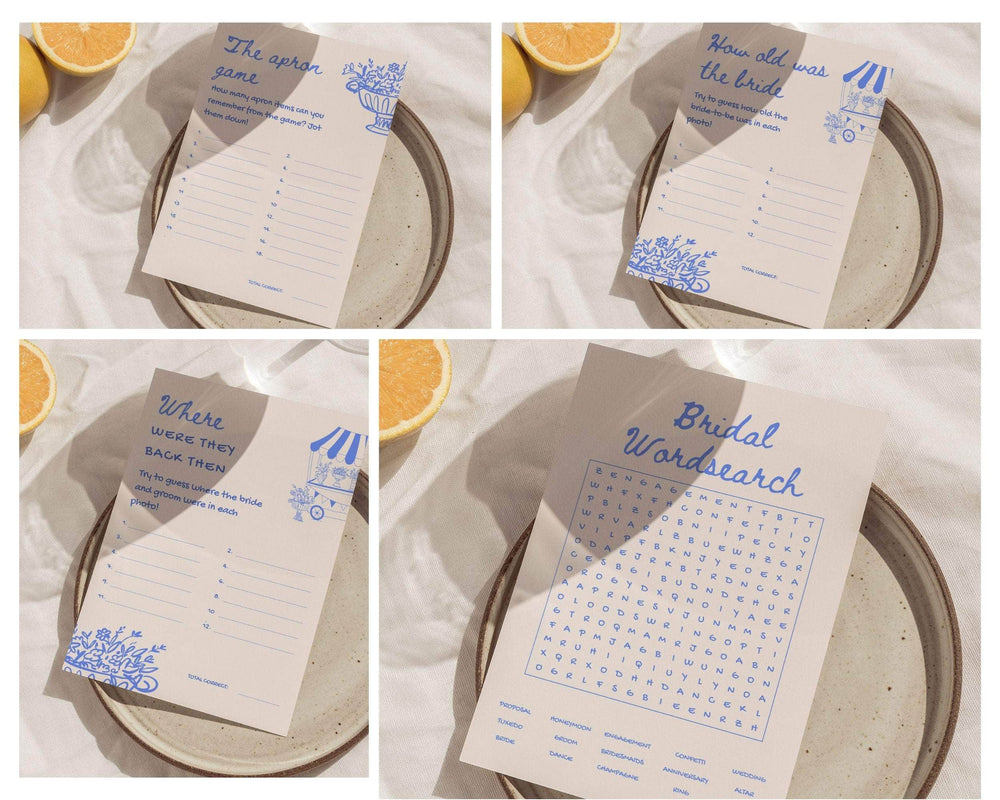 The apron
game
How many apron items can you
remember from the game? Jot
them down!
1.
2.
3.
4.
5.
6.
7.
8.
9.
10.
11.
12.
13.
14.
15.
16.
18.
TOTAL CORRECT:
How old was
the bride
Try to guess how old the
bride-to-be was in each
photo!
1.
2.
3.
4.
5.
6.
7.
8.
9.
10.
11.
12.
TOTAL CORRECT:
Where
WERE THEY
BACK THEN
Try to guess where the bride
and groom were in each
photo!
1.
2.
3.
4.
5.
6.
7.
8.
9.
10.
11.
12.
TOTAL CORRECT:
Bridal
Wordsearch
Z E N G A G E M E N T F B T T
W H F X F H C O N F E T T I O
P B L Z S O B N I I P E C K Y
W R V A R L Z B U E W H Z G R
V I L P F B K N J Y E O E X A
O D A E J R K B T R D N C G S
C E S B G I B U D N D E H U R
O R O G Y D X Q N O I Y A E E
A A P R N E S V J U N M M S V
O L O O D S W R I N G O P T I
G T R O Q M A M R J G O A B N
F A P M J A G B I W U N G O N
M R U H I I Q I U Y L Y N O A
X Q R X O D H H D A N C E K L
O G R L F S G B I E E N R Z H
PROPOSAL HONEYMOON ENGAGEMENT CONFETTI WEDDING
TUXEDO GROOM BRIDESMAIDS ANNIVERSARY ALTAR
BRIDE DANCE CHAMPAGNE RING